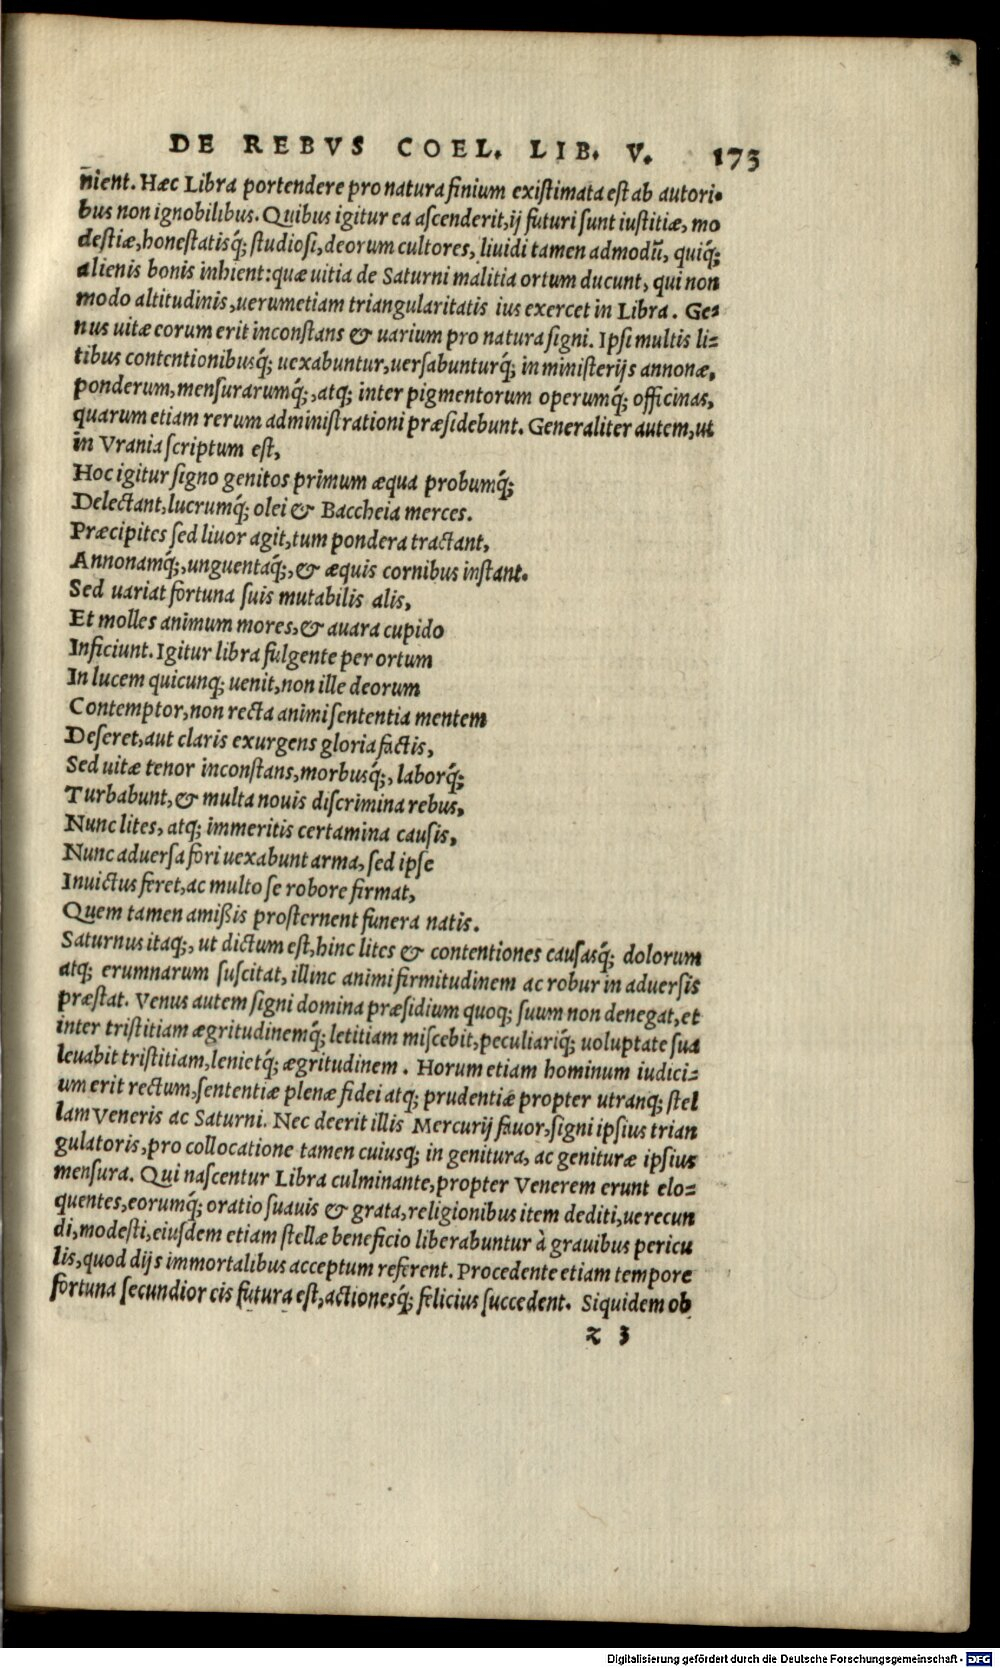 DE REBVS COEL. LIB. V. 173
nient. Hæc Libra portendere pro natura finium existimata est ab autori-
bus non ignobilibus. Quibus igitur ea ascenderit, ij futuri sunt iustitiæ, mo
destiæ, honestatisq́; studiosi, deorum cultores, liuidi tamen admodũ, quiq́;
alienis bonis inhient: quæ uitia de Saturni malitia ortum ducunt, qui non
modo altitudinis, uerumetiam triangularitatis ius exercet in Libra. Ge-
nus uitæ eorum erit inconstans & uarium pro natura signi. Ipsi multis li-
tibus contentionibusq́; uexabuntur, uersabunturq́; in ministerijs annonæ,
ponderum, mensurarumq́;, atq; inter pigmentorum operumq́; officinas,
quarum etiam rerum administrationi præsidebunt. Generaliter autem, ut
in Vrania scriptum est,
Hoc igitur signo genitos primum æqua probumq́;
Delectant, lucrumq́; olei & Baccheia merces.
Præcipites sed liuor agit, tum pondera tractant,
Annonamq́;, unguentaq́;, & æquis cornibus instant.
Sed uariat fortuna suis mutabilis alis,
Et molles animum mores, & auara cupido
Inficiunt. Igitur libra fulgente per ortum
In lucem quicunq; uenit, non ille deorum
Contemptor, non recta animi sententia mentem
Deseret, aut claris exurgens gloria factis,
Sed uitæ tenor inconstans, morbusq́;, laborq́;
Turbabunt, & multa nouis discrimina rebus,
Nunc lites, atq; immeritis certamina causis,
Nunc aduersa fori uexabunt arma, sed ipse
Inuictus feret, ac multo se robore firmat,
Quem tamen amißis prosternent funera natis.
Saturnus itaq;, ut dictum est, hinc lites & contentiones causasq́; dolorum
atq; erumnarum suscitat, illinc animi firmitudinem ac robur in aduersis
præstat. Venus autem signi domina præsidium quoq; suum non denegat, et
inter tristitiam ægritudinemq́; letitiam miscebit, peculiariq́; uoluptate sua
leuabit tristitiam, lenietq́; ægritudinem. Horum etiam hominum iudici-
um erit rectum, sententiæ plenæ fidei atq; prudentiæ propter utranq; stel
lam Veneris ac Saturni. Nec deerit illis Mercurij fauor, signi ipsius trian
gulatoris, pro collocatione tamen cuiusq; in genitura, ac genituræ ipsius
mensura. Qui nascentur Libra culminante, propter Venerem erunt elo-
quentes, eorumq́; oratio suauis & grata, religionibus item dediti, uerecun
di, modesti, eiusdem etiam stellæ beneficio liberabuntur à grauibus pericu
lis, quod dijs immortalibus acceptum referent. Procedente etiam tempore
fortuna secundior eis futura est, actionesq́; felicius succedent. Siquidem ob
z 3
Digitalisierung gefördert durch die Deutsche Forschungsgemeinschaft - DFG